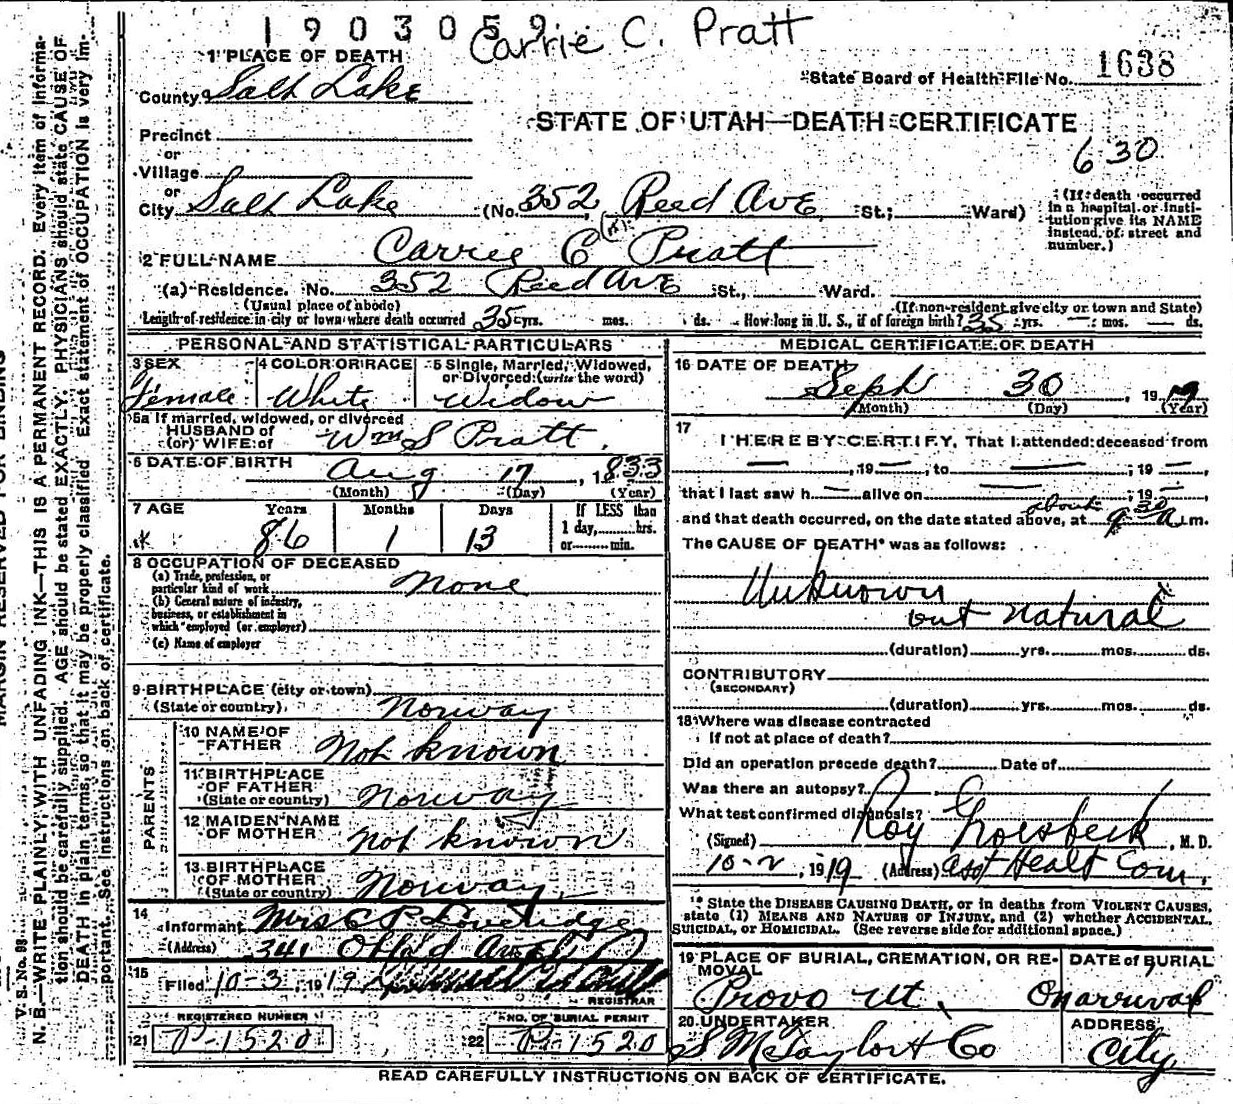 1903059
Carrie C. Pratt
1 PLACE OF DEATH
State Board of Health File No. 1638
County Salt Lake
STATE OF UTAH—DEATH CERTIFICATE
Precinct
or
630
Village
or
City Salt Lake (No. 352, Reed Ave, St.; Ward)
(If death occurred in a hospital or institution give its NAME instead of street and number.)
2 FULL NAME Carrie C Pratt
(a) Residence. No. 352 Reed Ave St., Ward.
(Usual place of abode) (If non-resident give city or town and State)
Length of residence in city or town where death occurred 35 yrs. mos. ds. How long in U. S., if of foreign birth? 35 yrs. — mos. — ds.
PERSONAL AND STATISTICAL PARTICULARS
3 SEX 4 COLOR OR RACE 5 Single, Married, Widowed, or Divorced (write the word)
Female White Widow
5a If married, widowed, or divorced
HUSBAND of
(or) WIFE of Wm S Pratt.
6 DATE OF BIRTH Aug 17, 1833
(Month) (Day) (Year)
7 AGE Years Months Days If LESS than
1 day, hrs.
or min.
86 1 13
8 OCCUPATION OF DECEASED
(a) Trade, profession, or
particular kind of work None
(b) General nature of industry,
business, or establishment in
which employed (or employer)
(c) Name of employer
9 BIRTHPLACE (city or town)
(State or country) Norway
PARENTS
10 NAME OF
FATHER Not known
11 BIRTHPLACE
OF FATHER
(State or country) Norway
12 MAIDEN NAME
OF MOTHER Not known
13 BIRTHPLACE
OF MOTHER
(State or country) Norway
14
Informant Mrs C P
(Address) 341
15
Filed 10-3, 1919
REGISTRAR
REGISTERED NUMBER
21 P-1520
NO. OF BURIAL PERMIT
22 P-1520
MEDICAL CERTIFICATE OF DEATH
16 DATE OF DEATH
Sept 30, 1919
(Month) (Day) (Year)
17
I HEREBY CERTIFY, That I attended deceased from
—, 19 —, to —; 19 —,
that I last saw h — alive on —, 19 —,
and that death occurred, on the date stated above, at about 9 30 a. m.
The CAUSE OF DEATH* was as follows:
Unknown
but natural
(duration) yrs. mos. ds.
CONTRIBUTORY
(SECONDARY)
(duration) yrs. mos. ds.
18 Where was disease contracted
If not at place of death?
Did an operation precede death? Date of
Was there an autopsy?
What test confirmed diagnosis?
(Signed) Roy Groesbeck, M. D.
10-2, 1919 (Address) Asst Healt Com.
* State the DISEASE CAUSING DEATH, or in deaths from VIOLENT CAUSES,
state (1) MEANS AND NATURE OF INJURY, and (2) whether ACCIDENTAL,
SUICIDAL, or HOMICIDAL. (See reverse side for additional space.)
19 PLACE OF BURIAL, CREMATION, OR RE-
MOVAL
Provo Ut.
DATE of BURIAL
On arrival
20 UNDERTAKER
S M Taylor & Co
ADDRESS
City
READ CAREFULLY INSTRUCTIONS ON BACK OF CERTIFICATE.
MARGIN RESERVED FOR BINDING
V. S. No. 98
N. B.—WRITE PLAINLY, WITH UNFADING INK—THIS IS A PERMANENT RECORD. Every item of informa-
tion should be carefully supplied. AGE should be stated EXACTLY. PHYSICIANS should state CAUSE OF
DEATH in plain terms, so that it may be properly classified. Exact statement of OCCUPATION is very im-
portant. See instructions on back of certificate.